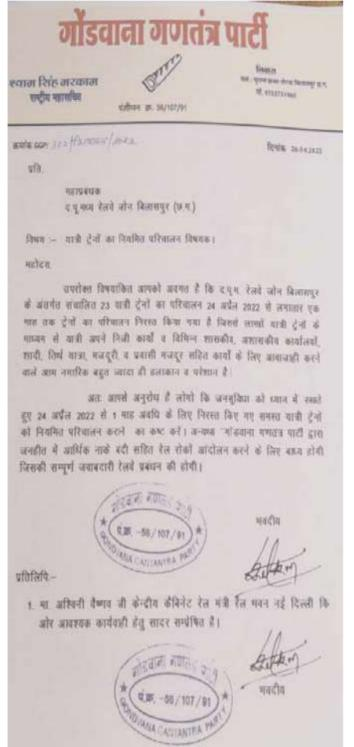 गोंडवाना गणतंत्र पार्टी
श्याम सिंह मरकाम
राष्ट्रीय महासचिव
निवास
पंजीयन क्र. 56/107/91
क्रमांक GGP/
दिनांक 26.04.2022
प्रति,
महाप्रबंधक
द.पू.मध्य रेलवे जोन बिलासपुर (छ.ग.)
विषय :– यात्री ट्रेनों का नियमित परिचालन विषयक।
महोदय,
उपरोक्त विषयांकित आपको अवगत है कि द.पू.म. रेलवे जोन बिलासपुर
के अंतर्गत संचालित 23 यात्री ट्रेनों का परिचालन 24 अप्रैल 2022 से लगातार एक
माह तक ट्रेनों का परिचालन निरस्त किया गया है जिससे लाखों यात्री ट्रेनों के
माध्यम से यात्री अपने निजी कार्यो व विभिन्न शासकीय, अशासकीय कार्यालयों,
शादी, तिर्थ यात्रा, मजदूरी, व प्रवासी मजदूर सहित कार्यो के लिए आवाजाही करने
वाले आम नागरिक बहुत ज्यादा ही हलाकान व परेशान है।
अतः आपसे अनुरोध है लोगो कि जनसुविधा को ध्यान में रखते
हुए 24 अप्रैल 2022 से 1 माह अवधि के लिए निरस्त किए गए समस्त यात्री ट्रेनों
को नियमित परिचालन कराने का कष्ट करें। अन्यथा "गोंडवाना गणतंत्र पार्टी द्वारा
जनहीत में आर्थिक नाके बंदी सहित रेल रोकों आंदोलन करने के लिए बाध्य होगी
जिसकी सम्पूर्ण जवाबदारी रेलवे प्रबंधन की होगी।
गोंडवाना गणतंत्र पार्टी
पं.क्र. -56/107/91
GONDWANA GANTANTRA PARTY
भवदीय
प्रतिलिपि:–
1. मा. अश्विनी वैष्णव जी केन्द्रीय कैबिनेट रेल मंत्री रेल भवन नई दिल्ली कि
ओर आवश्यक कार्यवाही हेतु सादर सम्प्रेषित है।
गोंडवाना गणतंत्र पार्टी
पं.क्र. -56/107/91
GONDWANA GANTANTRA PARTY
भवदीय